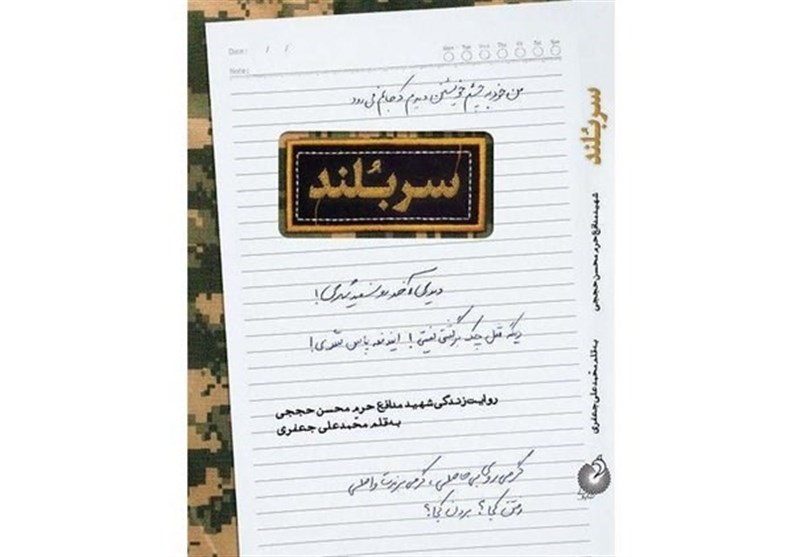 Date: / /
Mon Tue Wed Thu Fri Sat Sun
Note:
من خود به چشم خویشتن دیدم که جانم می رود
سربُلند
دیدی آخر رو سفید شدی!
دیگه قبل برگشتی نیستی! ایندفعه پاس شدی!
روایت زندگی شهید مدافع حرم محسن حججی
به قلم محمدعلی جعفری
گر می روی بی حاصلی، گر می برندت واصلی
رفتن کجا؟ بردن کجا؟
سربُلند
شهید مدافع حرم محسن حججی
به قلم محمدعلی جعفری